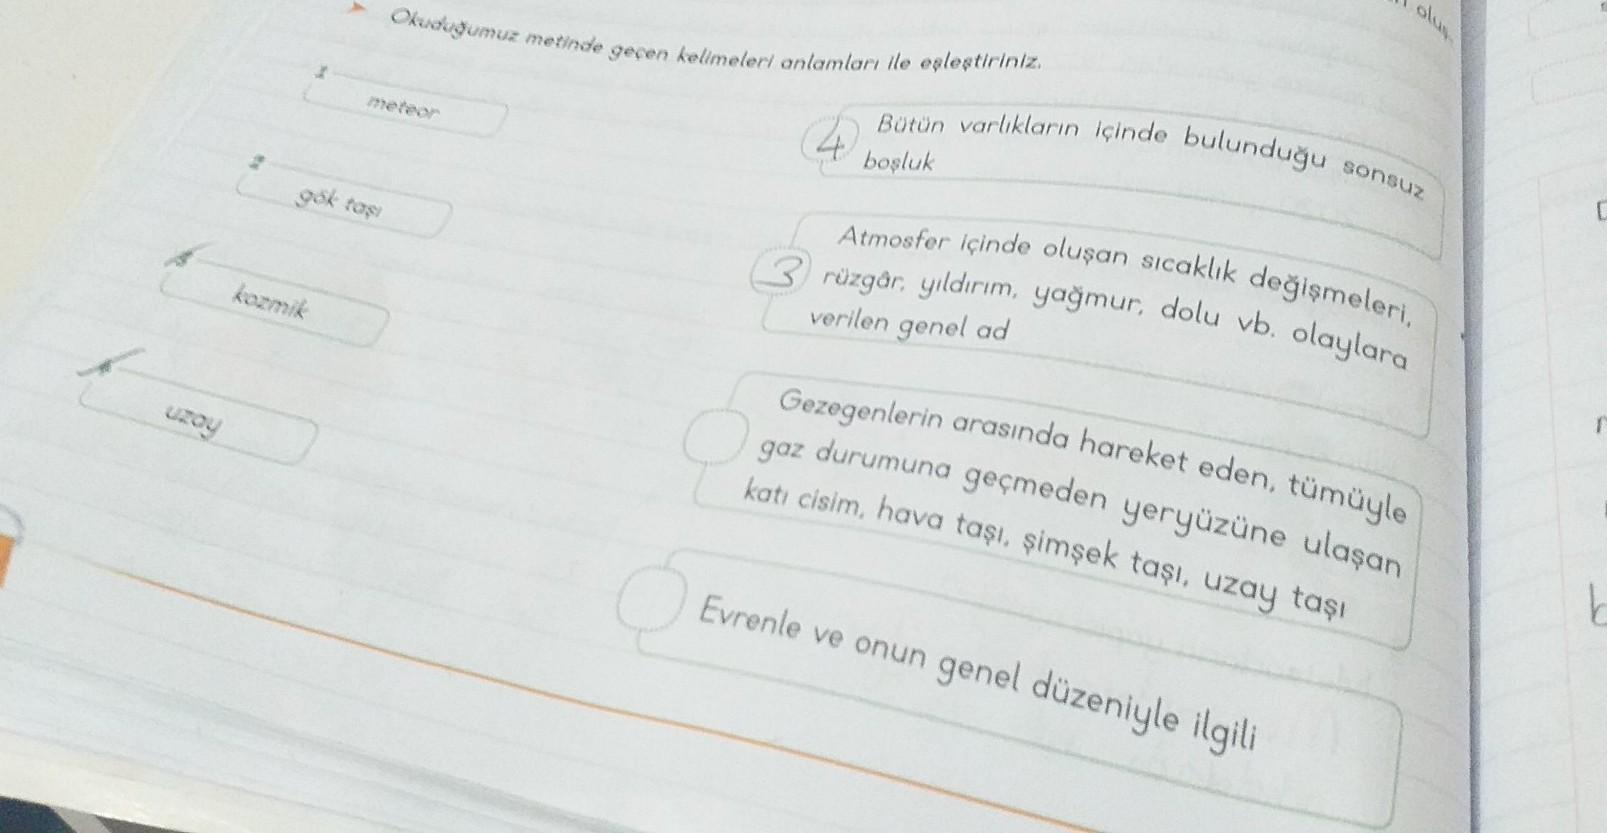 Okuduğumuz metinde geçen kelimeleri anlamları ile eşleştiriniz.
1
meteor
2
gök taşı
3
kozmik
4
uzay
4
Bütün varlıkların içinde bulunduğu sonsuz
boşluk
Atmosfer içinde oluşan sıcaklık değişmeleri,
3 rüzgâr, yıldırım, yağmur, dolu vb. olaylara
verilen genel ad
Gezegenlerin arasında hareket eden, tümüyle
gaz durumuna geçmeden yeryüzüne ulaşan
katı cisim, hava taşı, şimşek taşı, uzay taşı
Evrenle ve onun genel düzeniyle ilgili